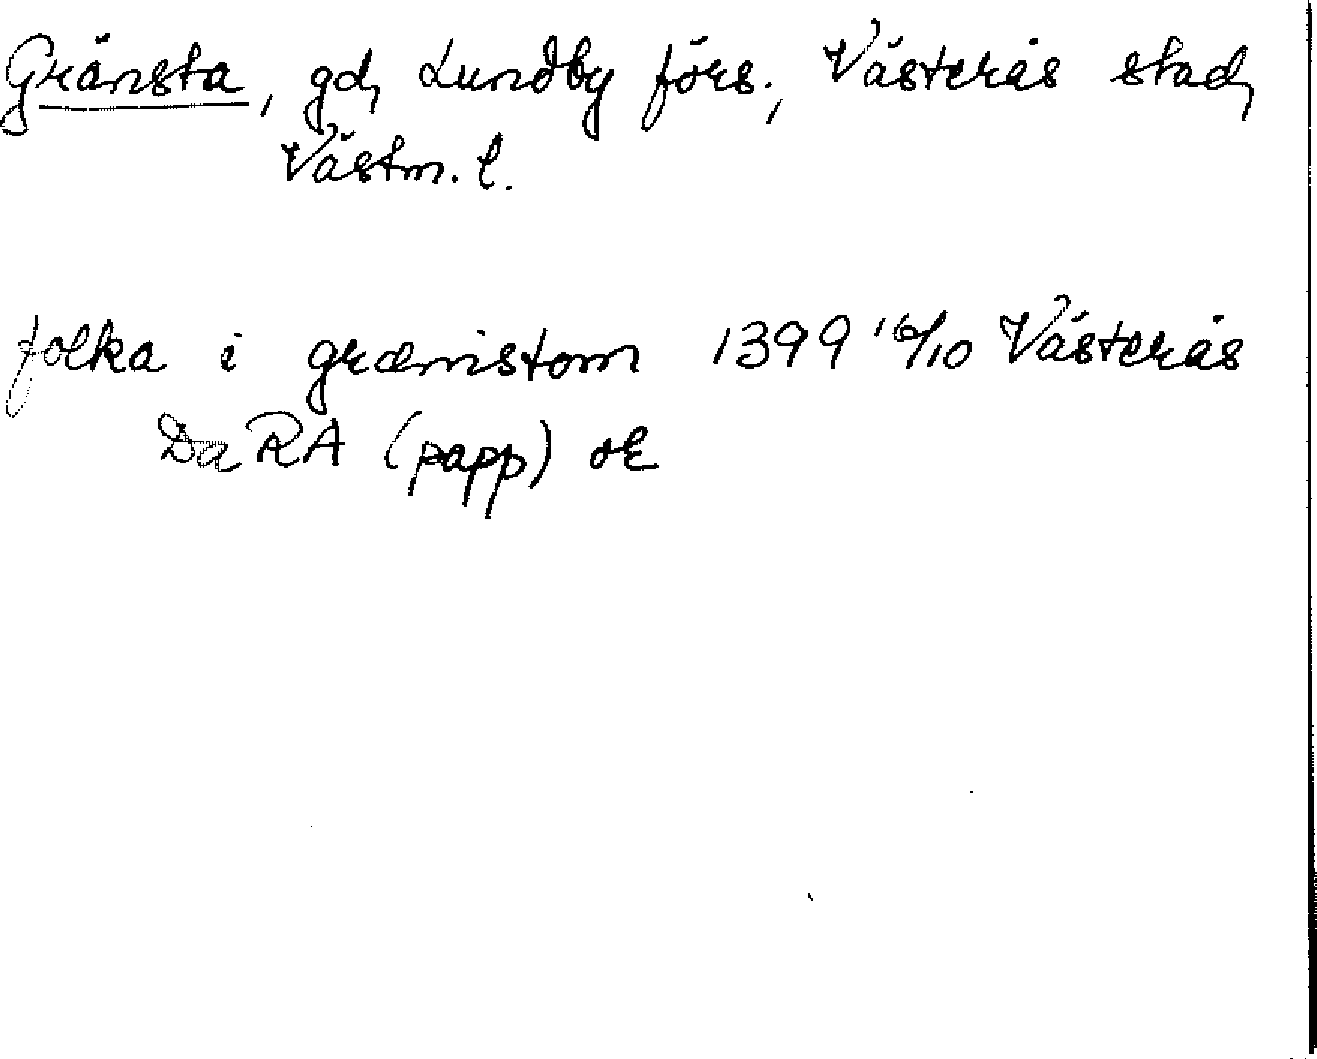 Gränsta, gd, Lundby förs., Västerås stad,
Västm. l.
folka i grænistom 1399 16/10 Västerås
DaRA (papp) or